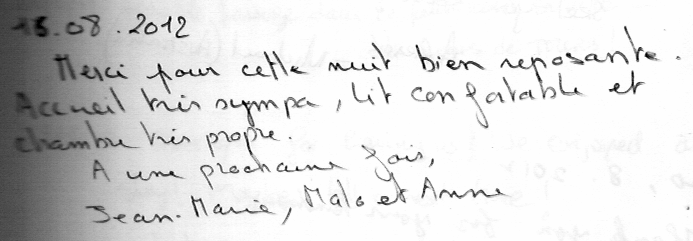 15.08.2012
Merci pour cette nuit bien reposante.
Accueil très sympa, lit confortable et
chambre très propre.
A une prochaine fois,
Jean-Marie, Malo et Anne